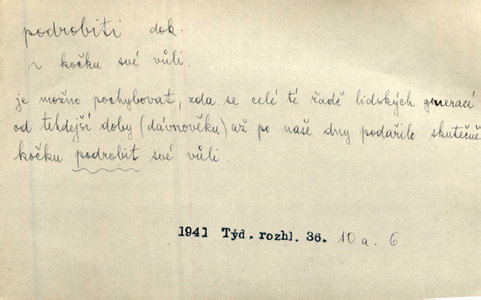 podrobiti dok.
~ kočku své vůli.
je možno pochybovat, zda se celé té řadě lidských generací
od tehdejší doby (dávnověku) až po naše dny podařilo skutečně
kočku podrobit své vůli.
1941 Týd. rozhl. 36. 10 a. 6.